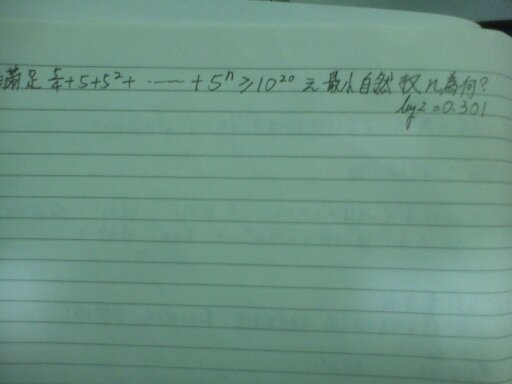 滿足 5/4+5+5²+ ...... +5ⁿ≥10²⁰ 之最小自然數n為何?
log2=0.301